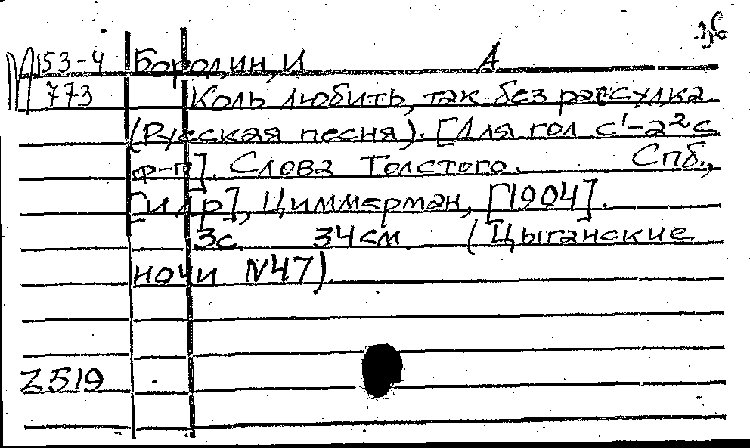 М153-4 Бородин, И А
773 Коль любить, так без рассудка
(Русская песня). [Для гол c¹-a²с
ф-п]. Слова Толстого. Спб.,
[и др], Циммерман, [1904].
3с 34см (Цыганские
ночи N47).
Z519